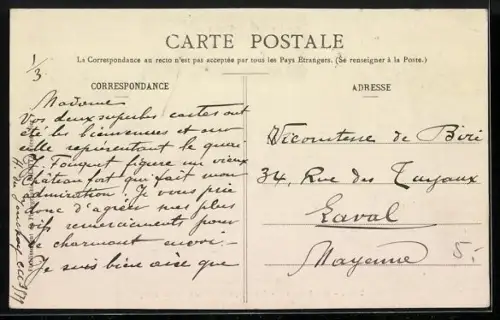 1/3
CARTE POSTALE
La Correspondance au recto n'est pas acceptée par tous les Pays Étrangers. (Se renseigner à la Poste.)
CORRESPONDANCE
Madame
Vos deux superbes cartes ont
été les bienvenues et sur
celle représentant le quai
J. Fouquet figure un vieux
château fort qui fait mon
admiration. Je vous prie
donc d'agréer mes plus
vifs remerciements pour
ce charmant envoi.-
Je suis bien aise que
ADRESSE
Vicomtesse de
34, Rue des
Laval
Mayenne
5-